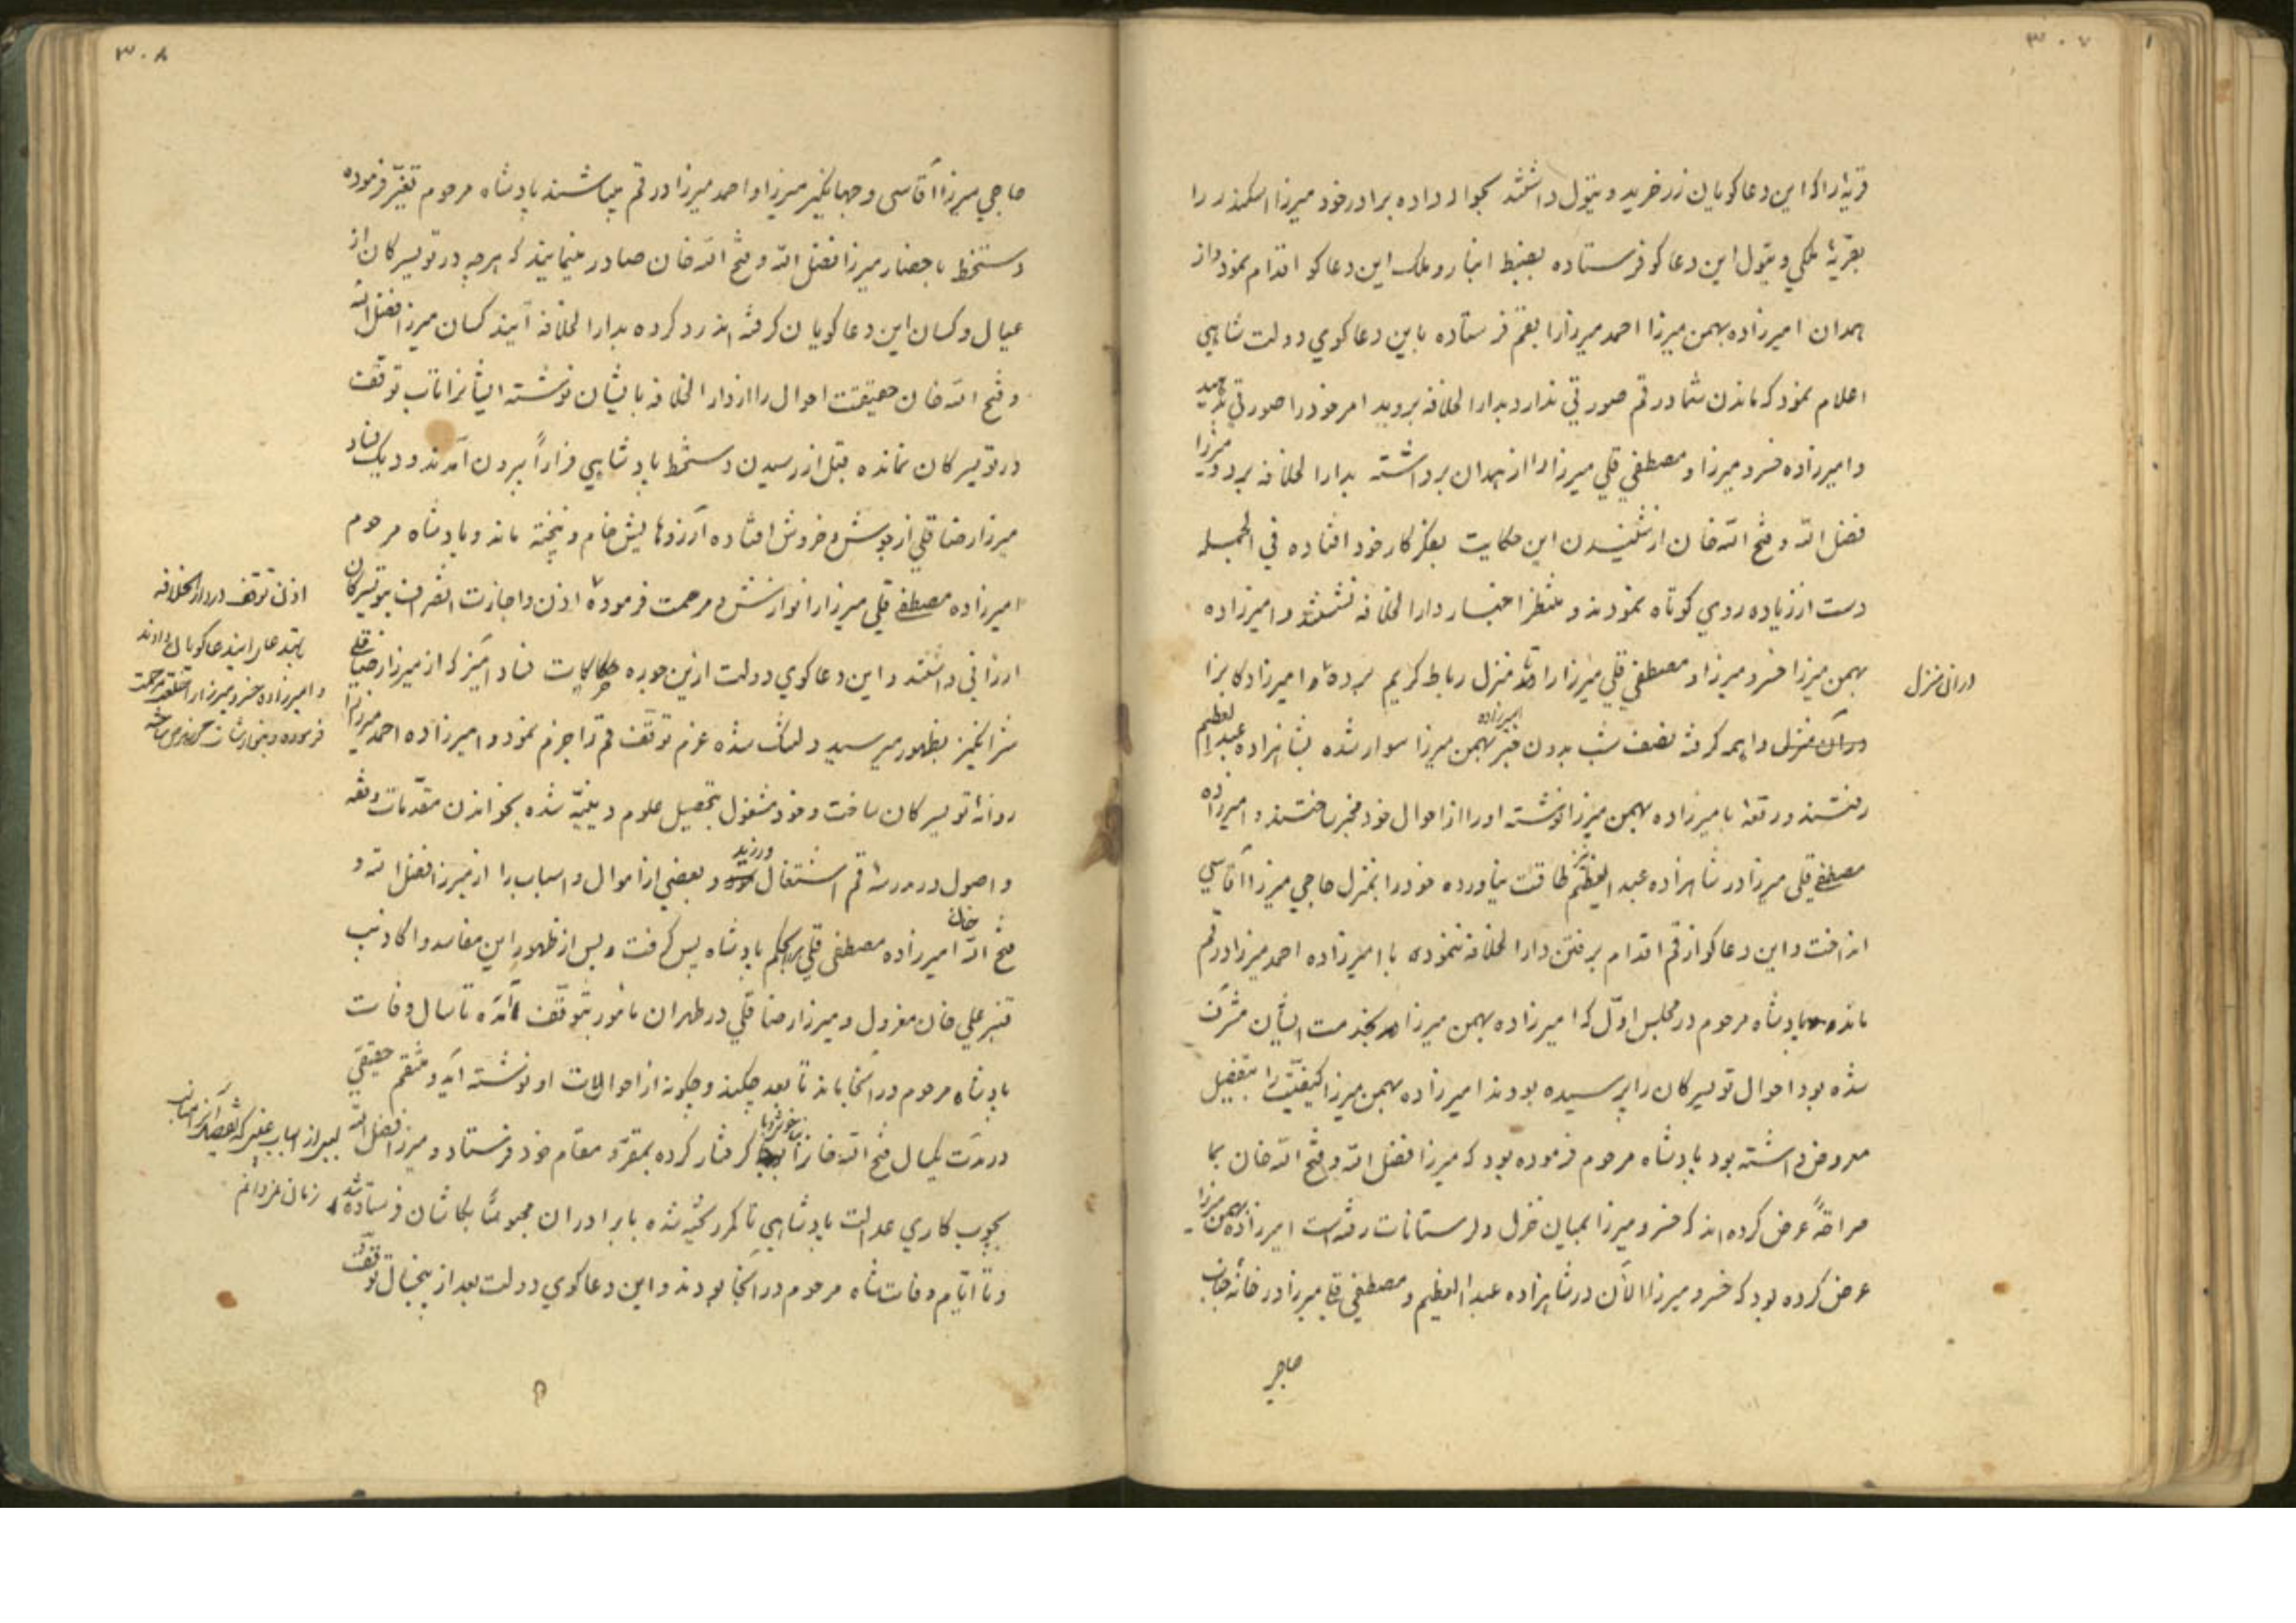 ۳۰۷
قریه‌را که این دعاکویان زر خرید و تیول داشتند بحواله داده برادر خود میرزا اسکندر را
بقریهٔ ملکي و تیول این دعاکو فرستاده بضبط انبار و ملک این دعاکو اقدام نمود و از
همدان امیرزاده بهمن میرزا احمد میرزا را بقم فرستاده باین دعاکوي دولت شاهي
اعلام نمود که ماندن شما در قم صورتي ندارد بدار الخلافه بروید امر خود را صورتي بدهید
و امیرزاده خسرو میرزا و مصطفي قلي میرزا را از همدان برداشته بدار الخلافه برد و میرزا
فضل الله و فتح الله خان از شنیدن این حکایت بفکر کار خود افتاده في الجمله
دست از زیاده روي کوتاه نمودند و منتظر اخبار دار الخلافه نشستند و امیرزاده
بهمن میرزا خسرو میرزا و مصطفي قلي میرزا را تا منزل رباط کریم برده و امیرزادکانرا
در ان منزل
در آن منزل واهمه کرفته نصف شب بدون خبر امیرزاده بهمن میرزا سوار شده بشاهزاده عبد العظیم
رفتند و رقعه بامیرزاده بهمن میرزا نوشته او را از احوال خود مخبر ساختند و امیرزاده
مصطفي قلي میرزا در شاهزاده عبد العظیم طاقت نیاورده خود را بمنزل حاجي میرزا آقاسي
انداخت و این دعاکو از قم اقدام برفتن دار الخلافه ننمودی با امیرزاده احمد میرزا در قم
ماند پادشاه مرحوم در مجلس اوّل که امیرزاده بهمن میرزا بخدمت ایشان مشرّف
شده بود احوال تویسرکان را پرسیده بودند امیرزاده بهمن میرزا کیفیّت را بتفصیل
معروض داشته بود پادشاه مرحوم فرموده بود که میرزا فضل الله و فتح الله خان بما
صراحةً عرض کرده‌اند که خسرو میرزا بمیان خزل و لرستانات رفته است امیرزاده بهمن میرزا
عرض کرده بود که خسرو میرزا الآن در شاهزاده عبد العظیم و مصطفي قلي میرزا در خانهٔ جناب
حاجي
۳۰۸
حاجي میرزا آقاسي و جهانکیر میرزا و احمد میرزا در قم میباشند پادشاه مرحوم تغیّر فرموده
دستخط باحضار میرزا فضل الله و فتح الله خان صادر مینمایند که هرچه در تویسرکان از
عیال و کسان این دعاکویان کرفته اند رد کرده بدار الخلافه آیند کسان میرزا فضل الله
و فتح الله خان حقیقت احوال را از دار الخلافه بایشان نوشته ایشانرا تاب توقف
در تویسرکان نمانده قبل از رسیدن دستخط پادشاهي فراراً بیرون آمدند و دیک فساد
میرزا رضا قلي از جوش و خروش افتاده آرزوهایش خام و نپخته ماند و پادشاه مرحوم
امیرزاده مصطفي قلي میرزا را نوازش و مرحمت فرموده اذن و اجازت انصراف بتویسرکان
اذن توقف در دار الخلافه
ارزاني داشتند و این دعاکوي دولت ازین جوره حکایات فساد آمیز که از میرزا رضا قلي
و امیرزاده خسرو میرزا را
شرانکیز بظهور میرسید دلتنک شده عزم توقف قم را جزم نمود و امیرزاده احمد میرزا را
روانهٔ تویسرکان ساخت و خود مشغول بتحصیل علوم دینیّه شده بخواندن مقدّمات و فقه
و اصول در مدرسهٔ قم اشتغال ورزید و بعضي از اموال و اسباب را از میرزا فضل الله و
فتح الله خان امیرزاده مصطفي قلي بحکم پادشاه پس کرفت و پس از ظهور این مفاسد و اکاذیب
قنبر علي خان معزول و میرزا رضا قلي در طهران مأمور بتوقف آمده تا سال وفات
پادشاه مرحوم در آنجا ماند تا بعد چکند و چکونه از احوالات او نوشته آید و منتقم حقیقي
در مدّت یکسال فتح الله خانرا کرفتار کرده بمقرّ و مقام خود فرستاد و میرزا فضل الله
بچوب کاري عدالت پادشاهي تا کمر رسیده شده با برادران مجموعاً بکاشان فرستاده شد
و تا ایّام وفات شاه مرحوم در آنجا بودند و این دعاکوي دولت بعد از پنجسال توقف